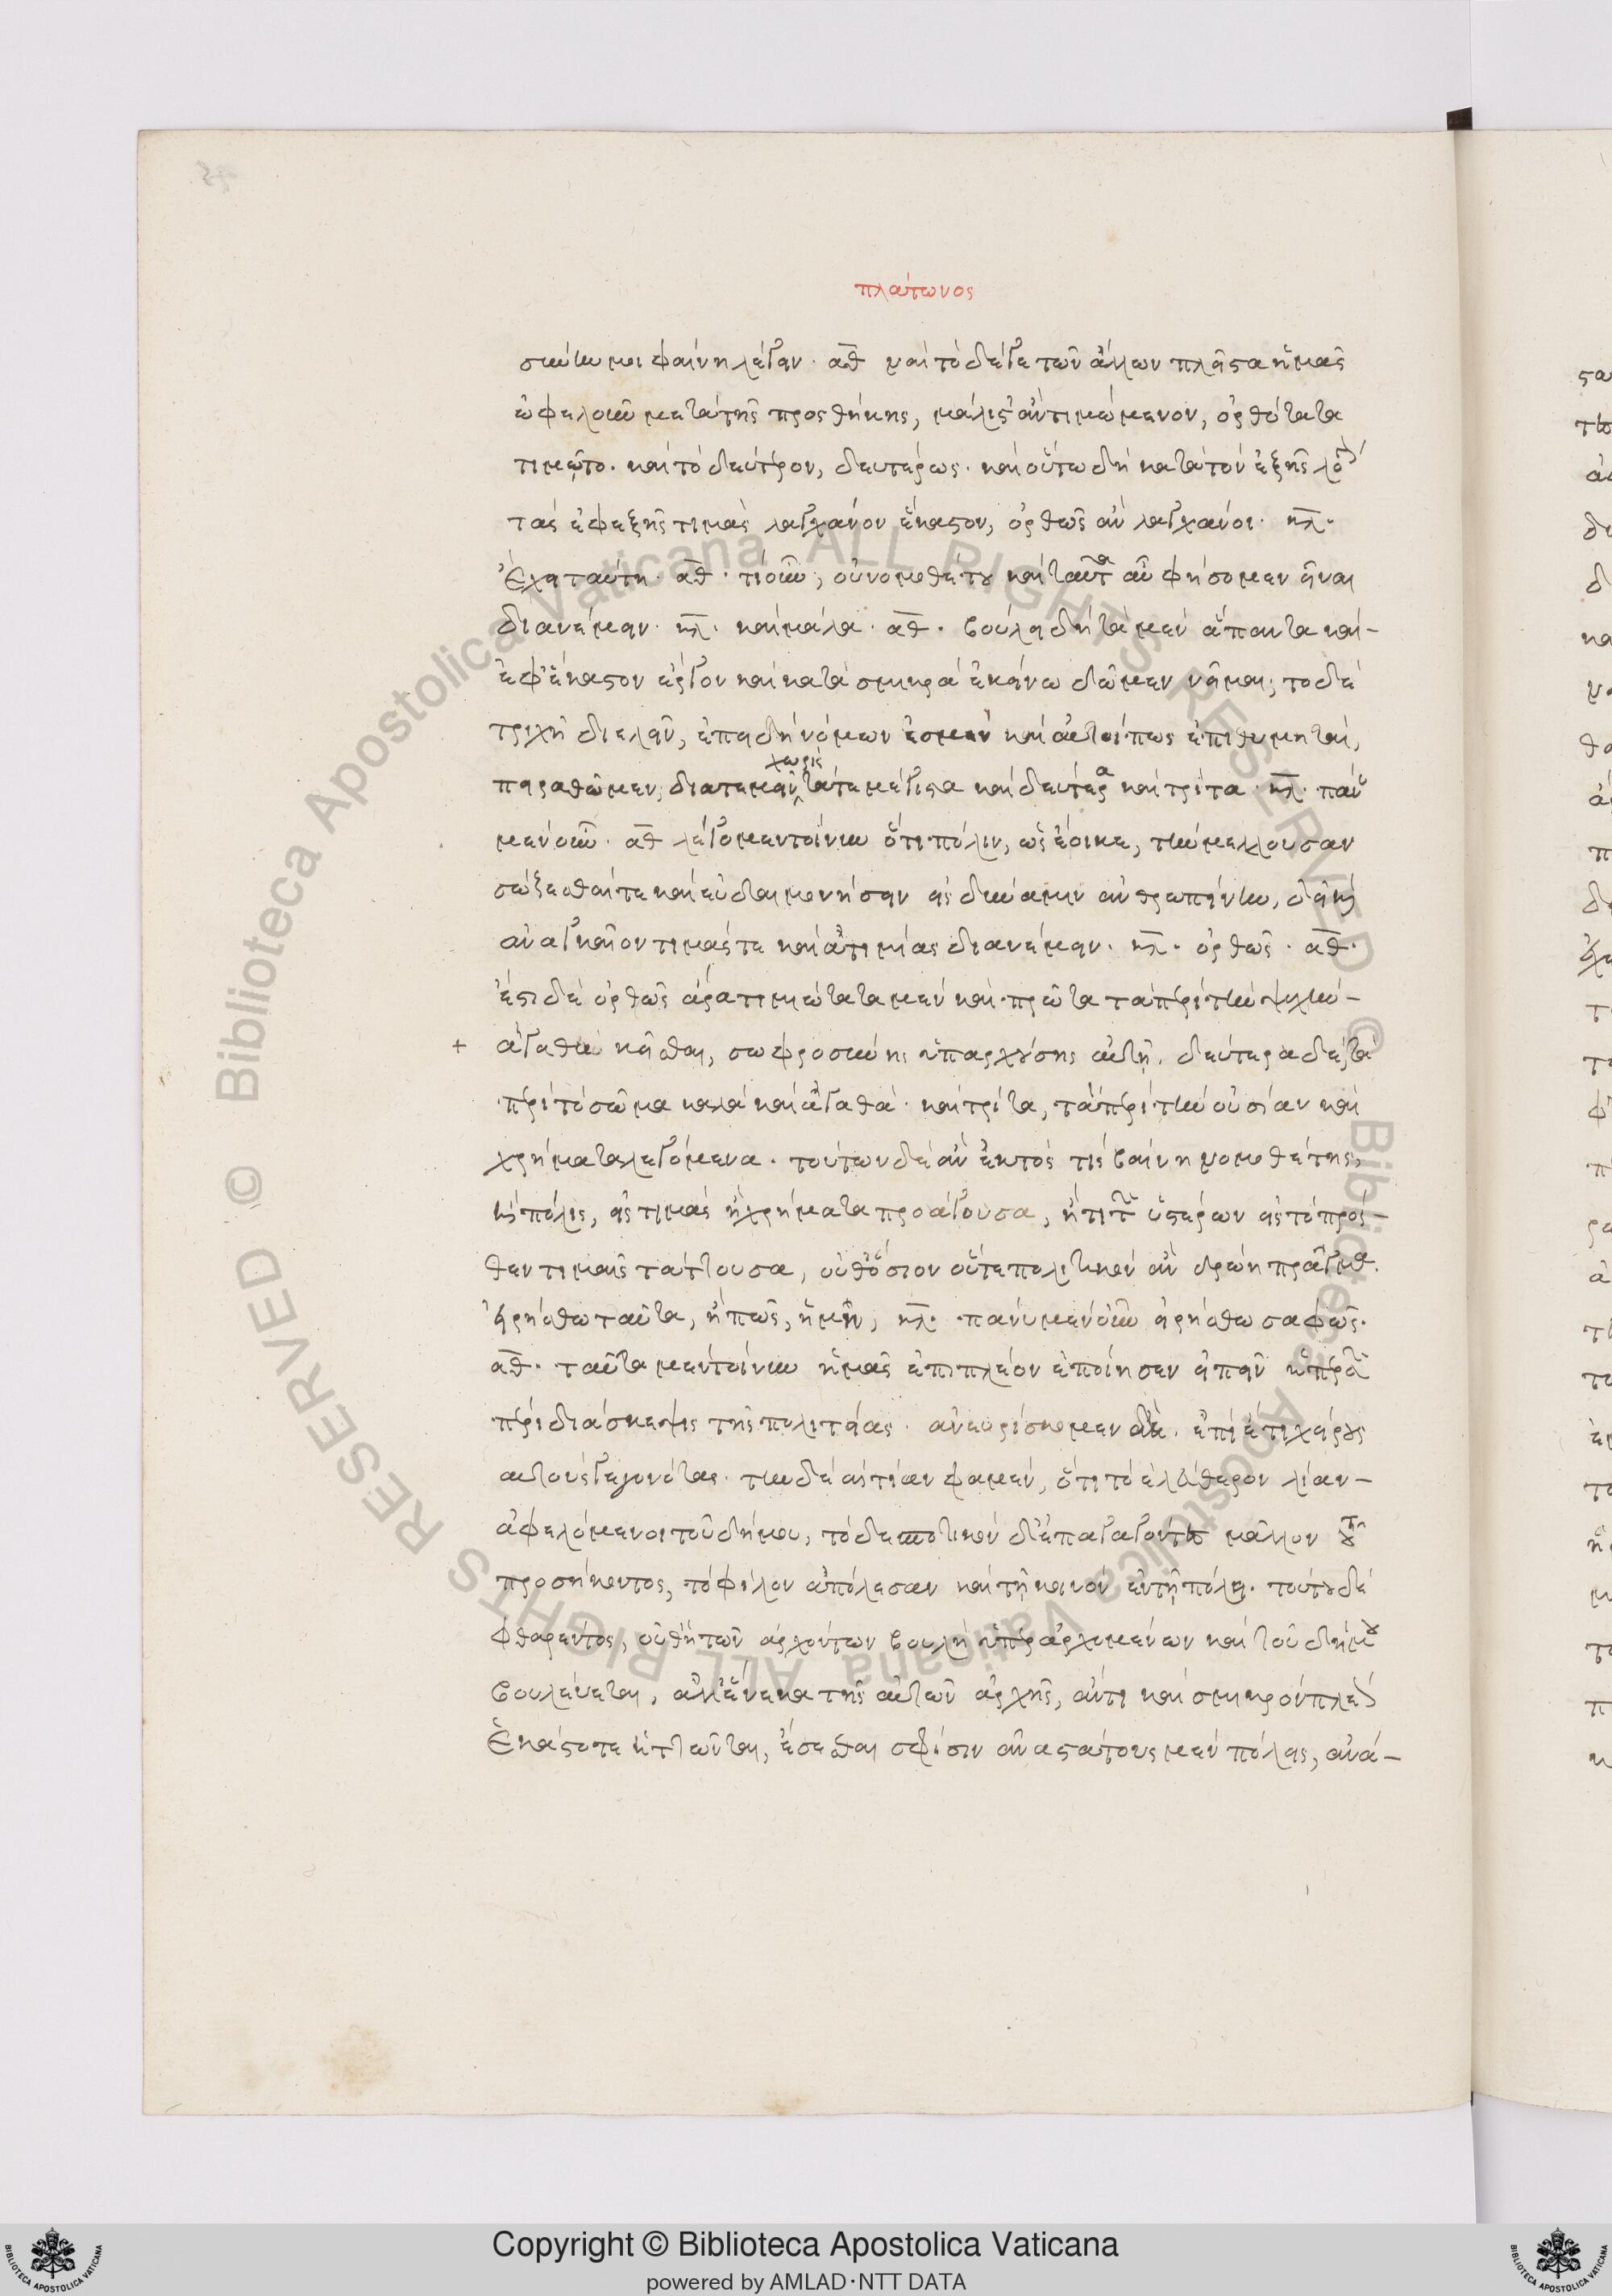 πλάτωνος
σιν· ἔμοι φαίνη λέγειν. αθ. καὶ τὸ δέ γε τῶν ἄλλων πλεῖστα ἡμᾶς
ὠφελοῦν μετὰ τῆς προσθήκης, μάλιστ' ἂν τιμώμενον, ὀρθότατα
τιμῷτο. καὶ τὸ δεύτερον, δευτέρως. καὶ οὕτω δὴ κατὰ τὸν ἑξῆς λόγον
τὰς ἐφεξῆς τιμὰς λαγχάνον ἕκαστον, ὀρθῶς ἂν λαγχάνοι. κλ.
ἔχει ταύτη. αθ. τί οὖν; οὐ νομοθέτου καὶ ταῦτα αὖ φήσομεν εἶναι
διανέμειν. κλ. καὶ μάλα. αθ. βούλει δὴ τὰ μὲν ἅπαντα καὶ-
ἐφ' ἕκαστον ἔργον καὶ κατὰ σμικρὰ ἐκείνω δῶμεν νεῖμαι; τὸ δὲ
τριχῆ διελεῖν, ἐπειδὴ νόμων ἐσμὲν καὶ αὐτοί πως ἐπιθυμηταί,
πειραθῶμεν, διατεμεῖν χωρὶς τά τε μέγιστα καὶ δεύτερα καὶ τρίτα. κλ. πάνυ
μὲν οὖν. αθ. λέγομεν τοίνυν ὅτι πόλιν, ὡς ἔοικε, τὴν μέλλουσαν
σώζεσθαί τε καὶ εὐδαιμονήσειν εἰς δύναμιν ἀνθρωπίνην, δεῖ καὶ
ἀναγκαῖον τιμάς τε καὶ ἀτιμίας διανέμειν. κλ. ὀρθῶς. αθ.
ἔστι δὲ ὀρθῶς ἄρα τιμιώτατα μὲν καὶ πρῶτα τὰ περὶ τὴν ψυχὴν-
+ ἀγαθὰ κεῖσθαι, σωφροσύνης ὑπαρχούσης αὐτῇ. δεύτερα δὲ τὰ
περὶ τὸ σῶμα καλὰ καὶ ἀγαθά. καὶ τρίτα, τὰ περὶ τὴν οὐσίαν καὶ
χρήματα λεγόμενα. τούτων δὲ ἂν ἐκτός τις βαίνη νομοθέτης,
ἢ πόλις, εἰς τιμὰς ἢ χρήματα προάγουσα, ἤ τι τῶν ὑστέρων εἰς τὸ πρόσ-
θεν τιμαῖς τάττουσα, οὔθ' ὅσιον οὔτε πολιτικὸν ἂν δρώη πρᾶγμα.
εἰρήσθω ταῦτα, ἢ πῶς, ἡμῖν; κλ. πάνυ μὲν οὖν εἰρήσθω σαφῶς.
αθ. ταῦτα μὲν τοίνυν ἡμᾶς ἐπιπλέον ἐποίησεν εἰπεῖν ἡ περσῶν
πέρι διάσκεψις τῆς πολιτείας. ἀνευρίσκομεν δὲ. ἐπὶ ἔτι χείρους
αὐτοὺς γεγονότας. τὴν δὲ αἰτίαν φαμέν, ὅτι τὸ ἐλεύθερον λίαν-
ἀφελόμενοι τοῦ δήμου, τὸ δεσποτικὸν δ' ἐπαγαγόντες μᾶλλον τοῦ
προσήκοντος, τὸ φίλον ἀπώλεσαν καὶ τὸ κοινὸν ἐν τῇ πόλει. τούτου δὲ
φθαρέντος, οὔθ' ἡ τῶν ἀρχόντων βουλὴ ὑπὲρ ἀρχομένων καὶ τοῦ δήμου
βουλεύεται, ἀλλ' ἕνεκα τῆς αὐτῶν ἀρχῆς, ἄν τι καὶ σμικρὸν πλέον
ἑκάστοτε ἡγῶνται, ἔσεσθαι σφίσιν ἀναστάτους μὲν πόλεις, ἀνά-
Copyright © Biblioteca Apostolica Vaticana
powered by AMLAD·NTT DATA